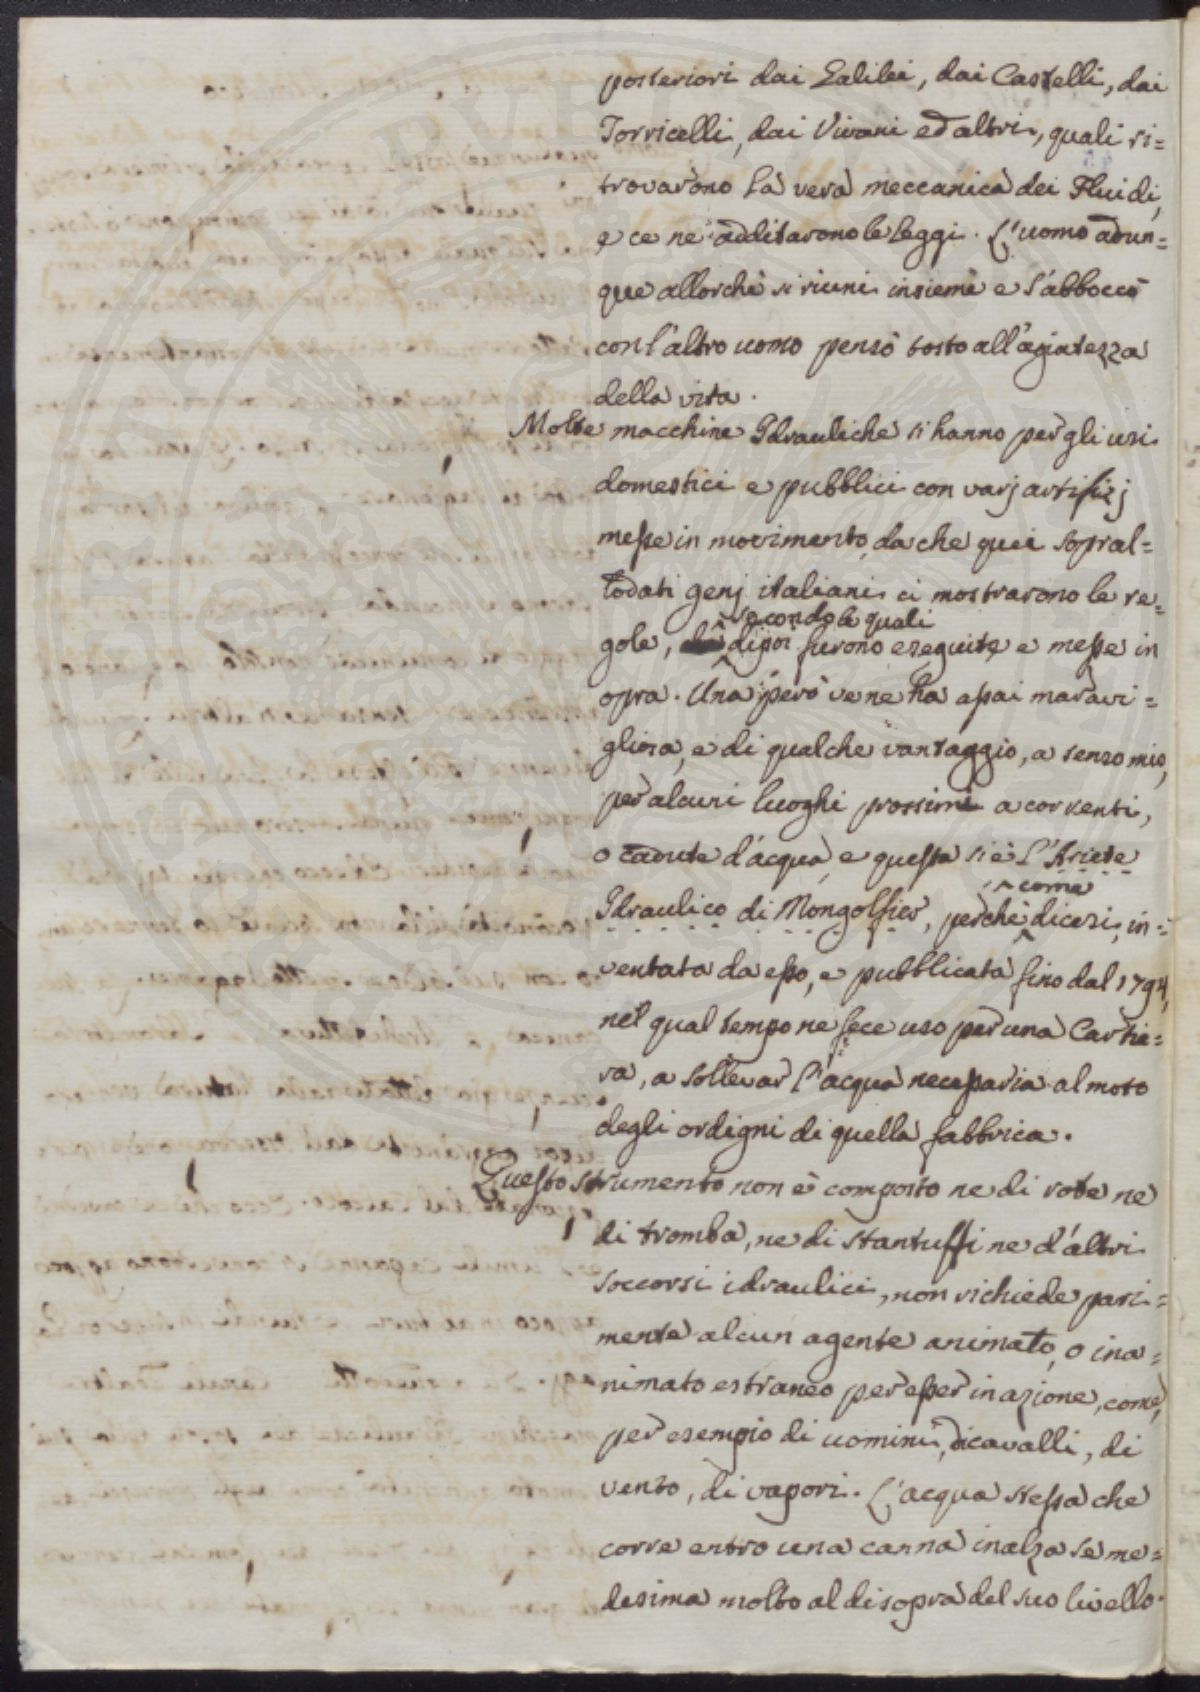 posteriori dai Galilei, dai Castelli, dai
Torricelli, dai Viviani ed altri, quali ri=
trovarono la vera meccanica dei Fluidi,
e ce ne additarono le leggi. L'uomo adun=
que allorchè si riunì insieme e s'abboccò
con l'altro uomo pensò tosto all'agiatezza
della vita.
Molte macchine Idrauliche si hanno per gli usi
domestici e pubblici con varj artifizj
messe in movimento, da che quei sopral=
lodati genj italiani ci mostrarono le re=
secondo le quali
gole, dipoi furono eseguite e messe in
opra. Una però ve ne ha assai maravi=
gliosa, e di qualche vantaggio, a senso mio,
per alcuni luoghi prossimi a correnti,
o cadute d'acqua, e questa si è L'Ariete
come
Idraulico di Mongolfier, perchè dicesi, in=
ventata da esso, e pubblicata fino dal 1794,
nel qual tempo ne fece uso per una Cartie=
ra, a sollevar l'acqua necessaria al moto
degli ordigni di quella fabbrica.
Questo strumento non è composto ne di rote ne
di tromba, ne di stantuffi ne d'altri
soccorsi idraulici, non richiede pari=
mente alcun agente animato, o ina=
nimato estraneo per esser in azione, come,
per esempio di uomini, di cavalli, di
vento, di vapori. L'acqua stessa che
corre entro una canna inalza se me=
desima molto al disopra del suo livello.